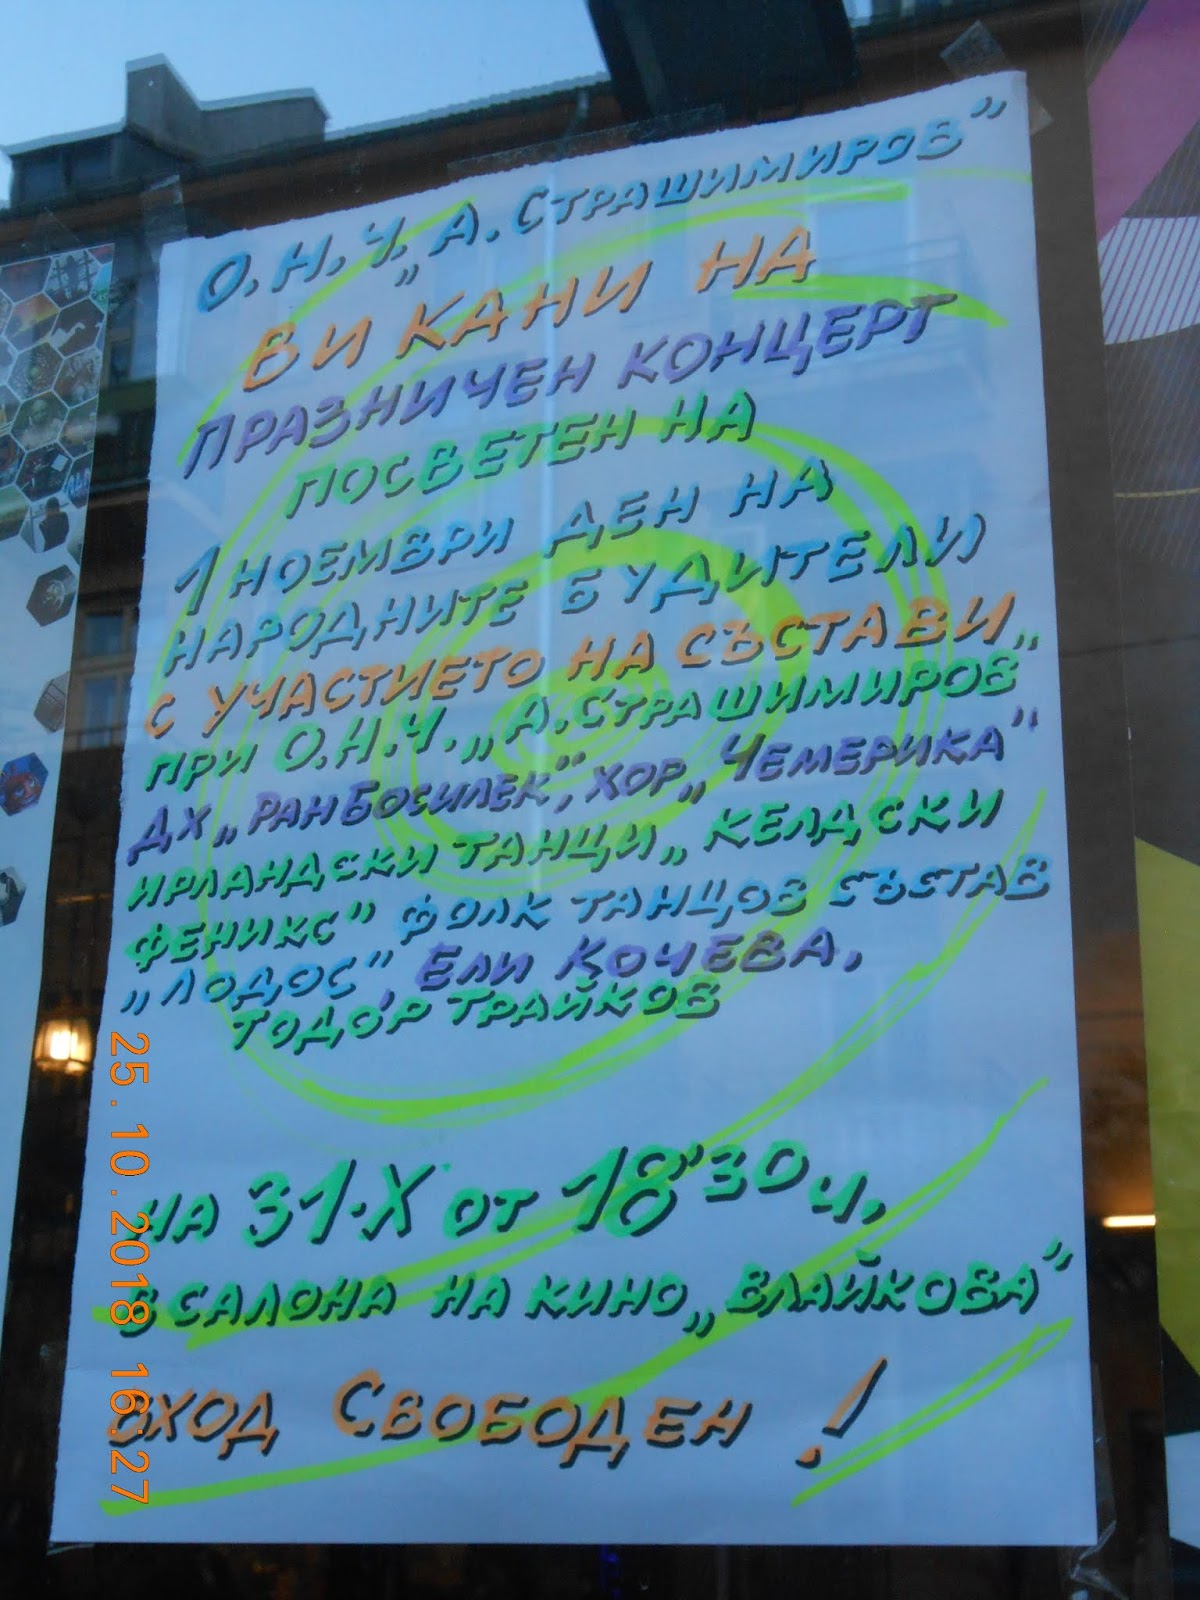 О.Н.Ч. „А.Страшимиров"
ВИ КАНИ НА
ПРАЗНИЧЕН КОНЦЕРТ
ПОСВЕТЕН НА
1 НОЕМВРИ ДЕН НА
НАРОДНИТЕ БУДИТЕЛИ
С УЧАСТИЕТО НА СЪСТАВИ
ПРИ О.Н.Ч. „А.СТРАШИМИРОВ"
ДХ „РАН БОСИЛЕК", ХОР „ЧЕМЕРИКА"
ИРЛАНДСКИ ТАНЦИ „КЕЛДСКИ
ФЕНИКС" ФОЛК ТАНЦОВ СЪСТАВ
„ЛОДОС", ЕЛИ КОЧЕВА,
ТОДОР ТРАЙКОВ
НА 31.X ОТ 18'30 Ч.
В САЛОНА НА КИНО „ВЛАЙКОВА"
ВХОД СВОБОДЕН !
25.10.2018 16:27